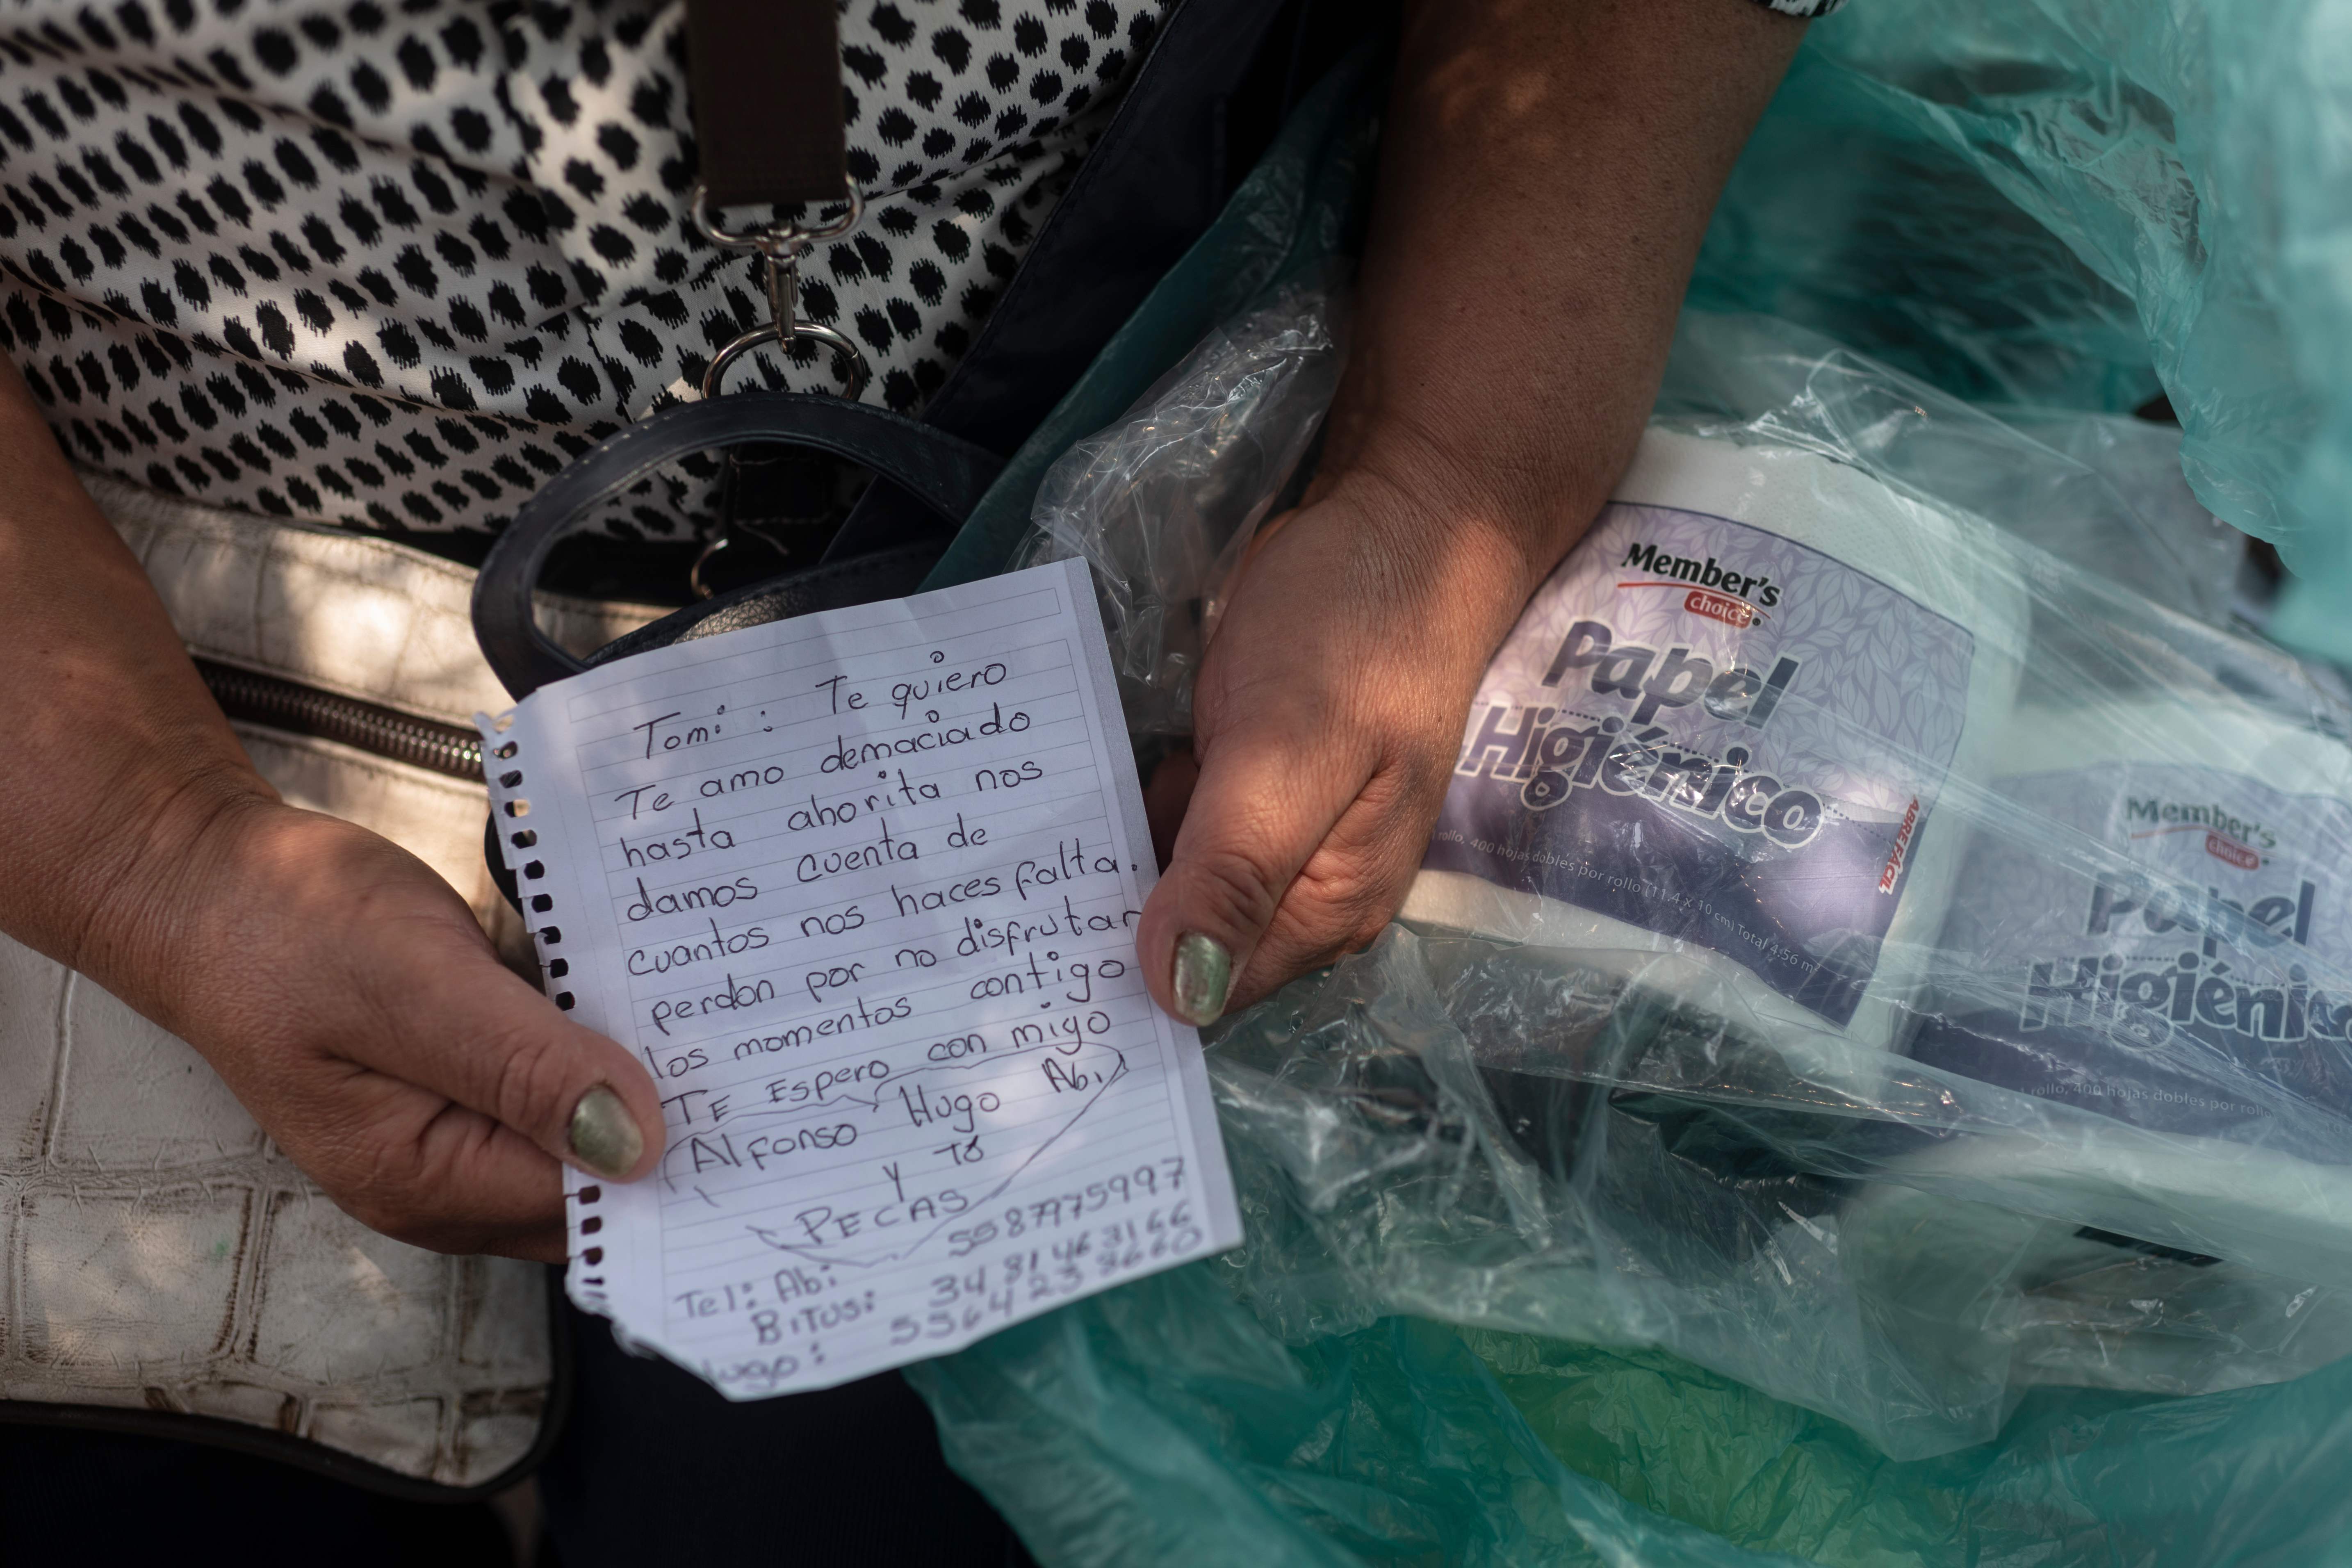 Tomi : Te quiero
Te amo demaciado
hasta ahorita nos
damos cuenta de
cuantos nos haces falta.
perdon por no disfrutar
los momentos contigo
TE ESPERO con migo
Alfonso Hugo Abi
y tø
PECAS
Tel: Abi 5587975997
BiTUS: 34 81 46 31 66
Hugo: 5564 23 8660
Member's
choice
Papel
Higiénico
rollo, 400 hojas dobles por rollo (11.4 x 10 cm) Total 4.56 m²
ABRE FÁCIL
Member's
choice
Papel
Higiénico
rollo, 400 hojas dobles por rollo